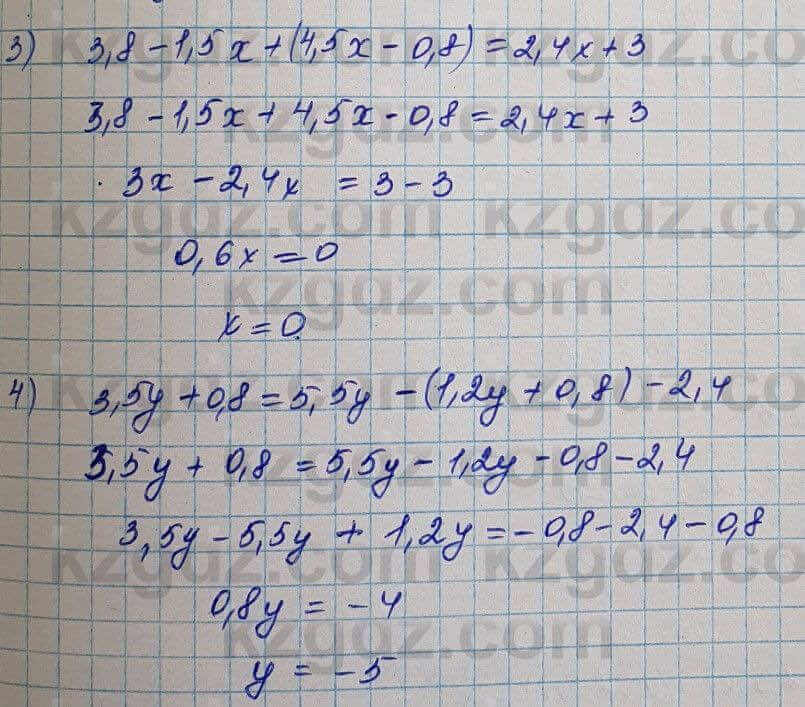 3) 3,8 - 1,5x + (4,5x - 0,8) = 2,4x + 3
3,8 - 1,5x + 4,5x - 0,8 = 2,4x + 3
3x - 2,4x = 3 - 3
0,6x = 0
x = 0
4) 3,5y + 0,8 = 5,5y - (1,2y + 0,8) - 2,4
3,5y + 0,8 = 5,5y - 1,2y - 0,8 - 2,4
3,5y - 5,5y + 1,2y = - 0,8 - 2,4 - 0,8
0,8y = - 4
y = - 5